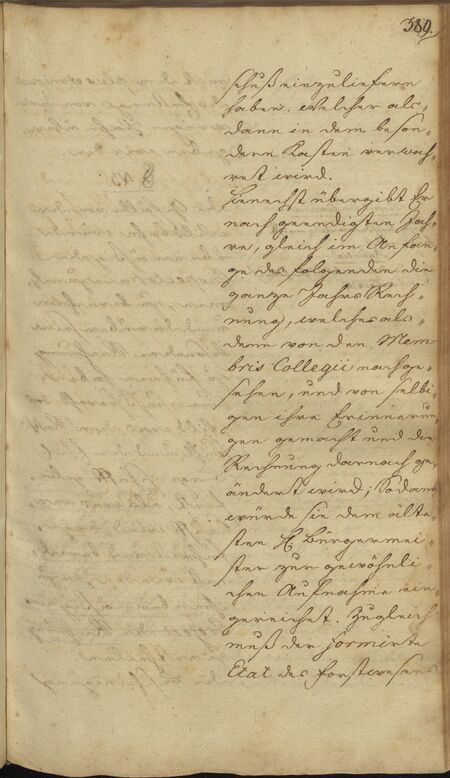 389.
schuß einzuliefern
haben. Welcher als„
dann in dem beson„
dern Kasten verwah„
ret wird.
Hienechst übergibt Er
nach geendigten Jah„
re, gleich im Anfan„
ge des folgenden die
ganze Jahrs Rech„
nung, welche als„
denn von den Mem„
bris Collegii nachge„
sehen, und von selbi„
gen ihre Erinnerun„
gen gemacht und die
Rechnung darnach ge„
ändert wird; Sodann
würde sie dem älte„
sten H. Bürgermei„
ster zur gewöhnli„
chen Aufnahme ein„
gereichet. Zugleich
muß der formirte
Etat des Forstwesens